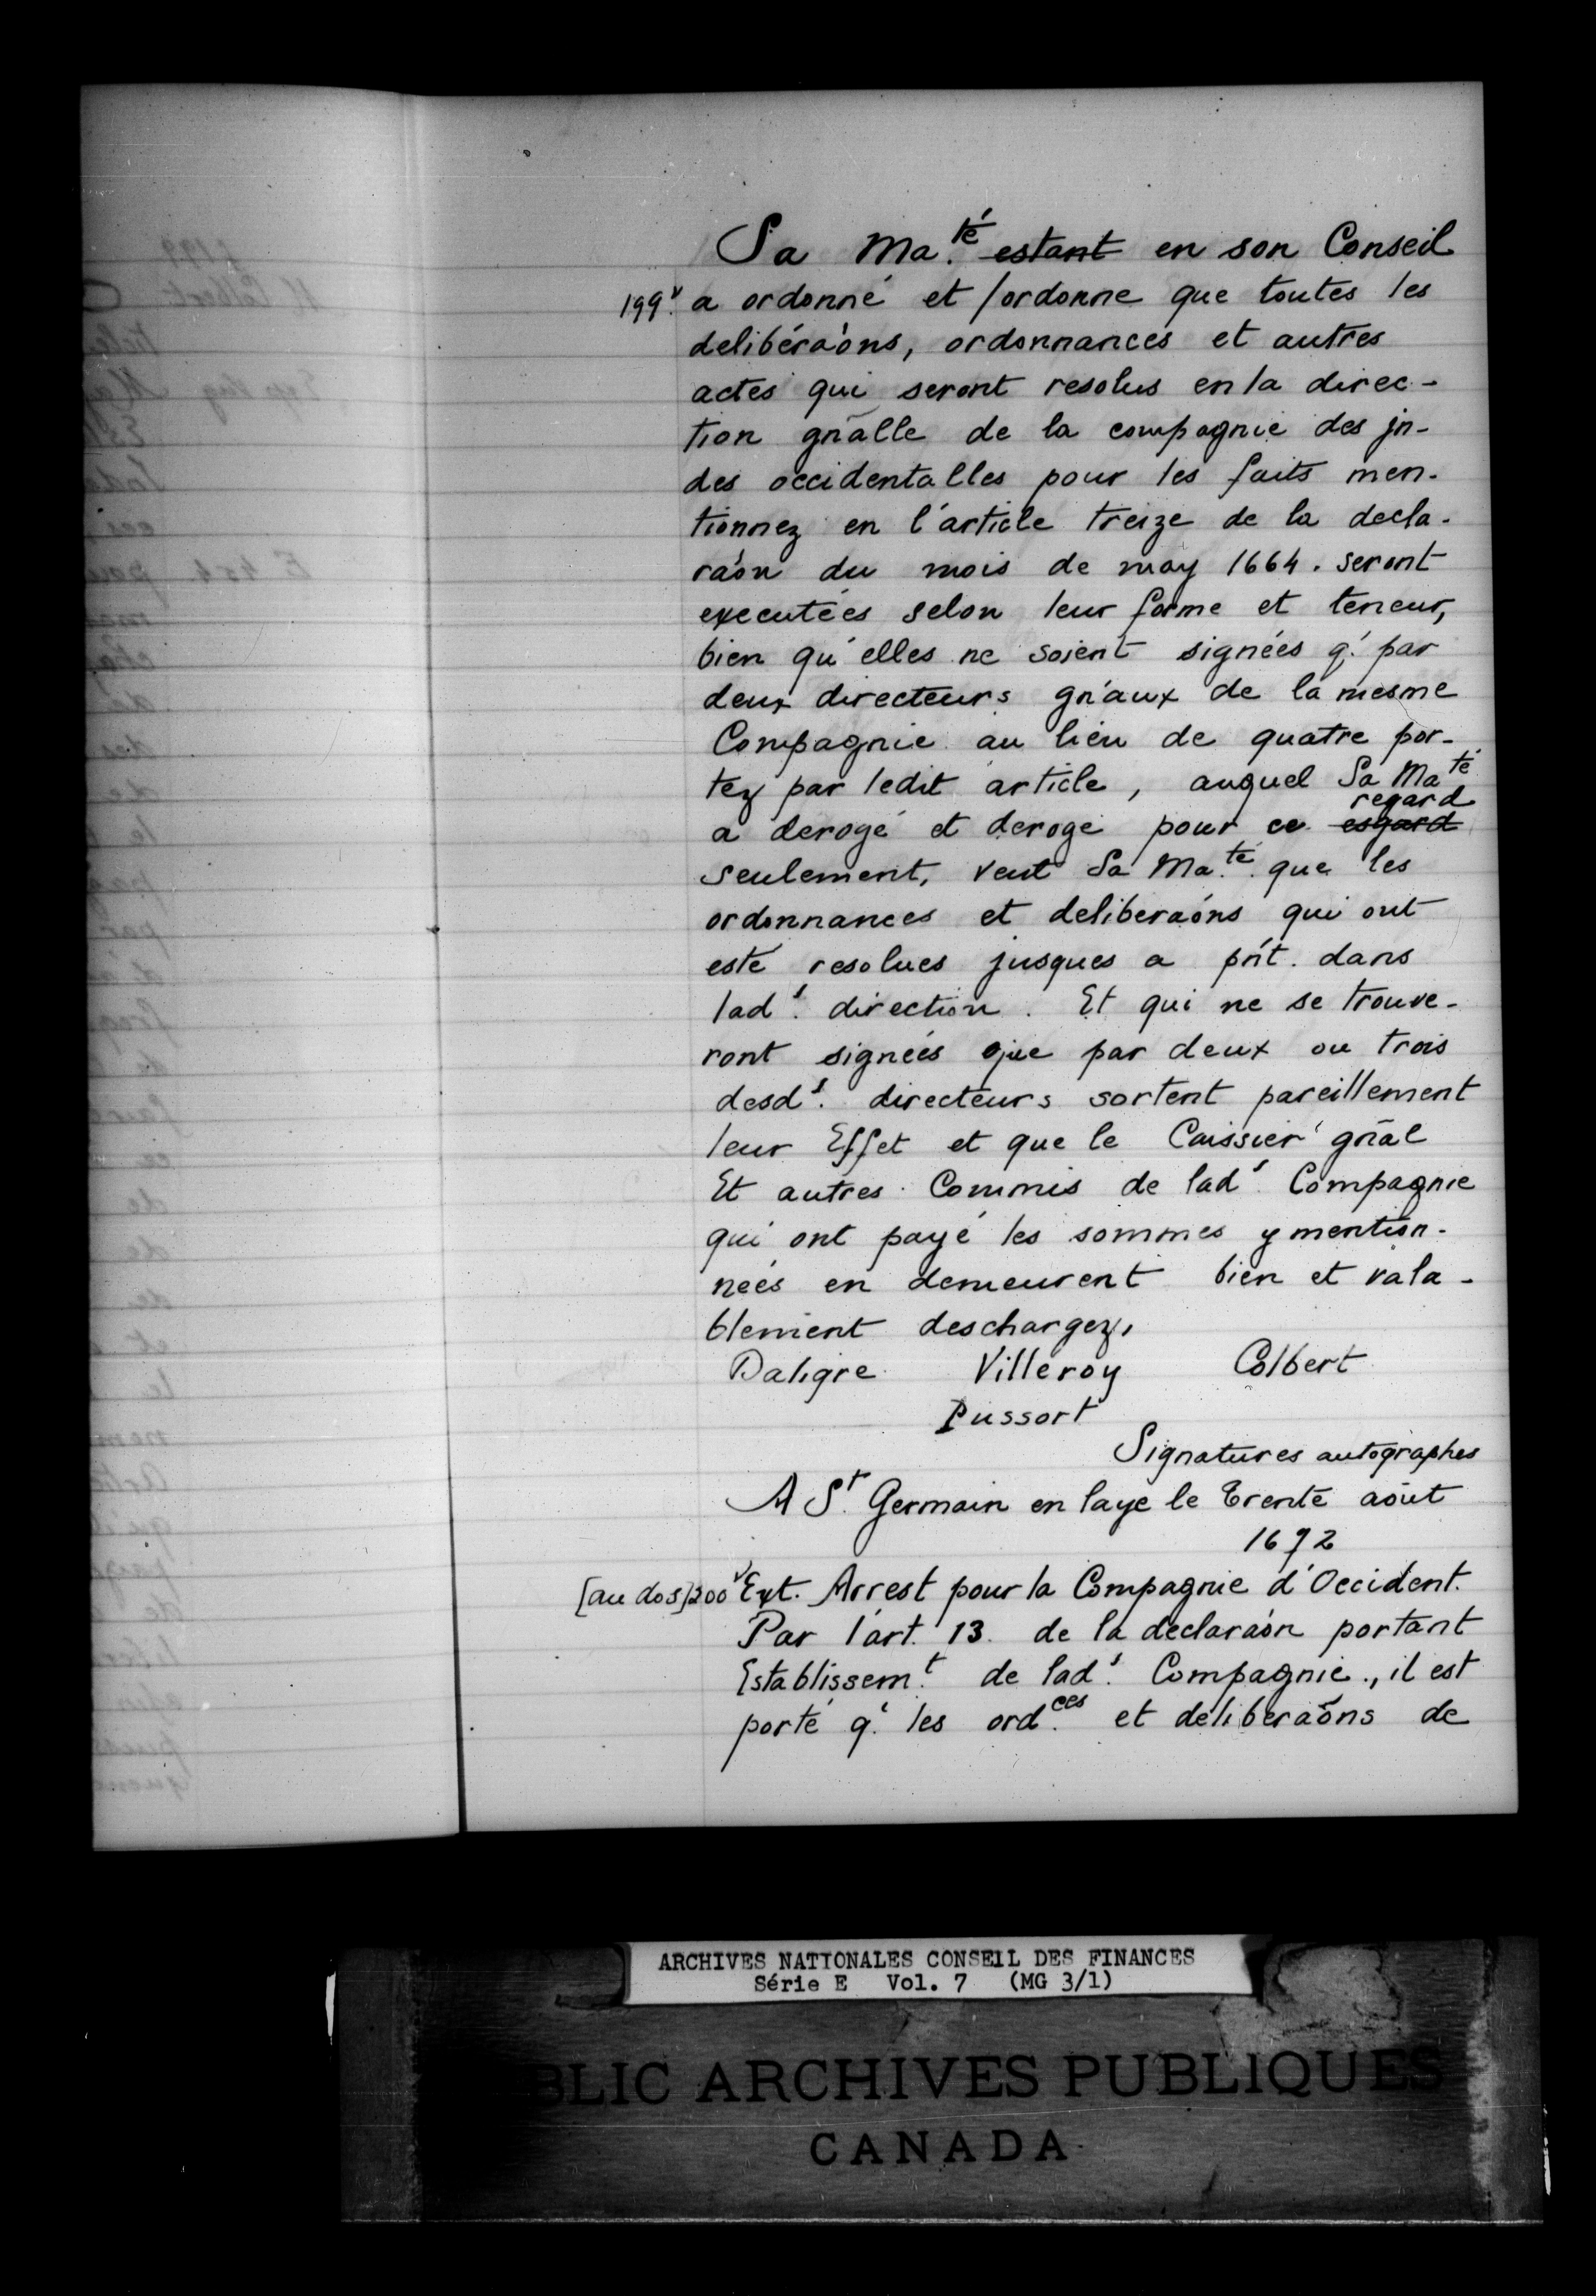 Sa Ma.té estant en son Conseil
199v. a ordonné et /ordonne que toutes les
delibéraóns, ordonnances et autres
actes qui seront resolus en la direc-
tion gnãlle de la compagnie des jn-
des occidentalles pour les faits men-
tionnez en l'article treize de la decla-
raón du mois de may 1664. seront
executées selon leur forme et teneur,
bien qu'elles ne soient signées q.' par
deux directeurs gn'aux de la mesme
Compagnie au lieu de quatre por-
tez par ledit article, auquel Sa Ma té
regard
a derogé et deroge pour ce esgard
seulement, veut Sa Ma.té que les
ordonnances et deliberaóns qui ont
esté resolues jusques a pńt. dans
lad.' direction. Et qui ne se trouve-
ront signées que par deux ou trois
desd s. directeurs sortent pareillement
leur Effet et que le Caissier gnãl
Et autres Commis de lad' Compagnie
qui ont payé les sommes y mention-
nées en demeurent bien et vala-
blement deschargez,
Daligre Villeroy Colbert
Pussort
Signatures autographes
A St. Germain en laye le Trente août
1672
[au dos] 200v Ext. Arrest pour la Compagnie d'Occident.
Par l'art. 13. de la declaraón portant
Establissem.t de lad.' Compagnie., il est
porté q.' les ord.ces et deliberaõns de
ARCHIVES NATIONALES CONSEIL DES FINANCES
Série E Vol. 7 (MG 3/1)
BLIC ARCHIVES PUBLIQUES
CANADA